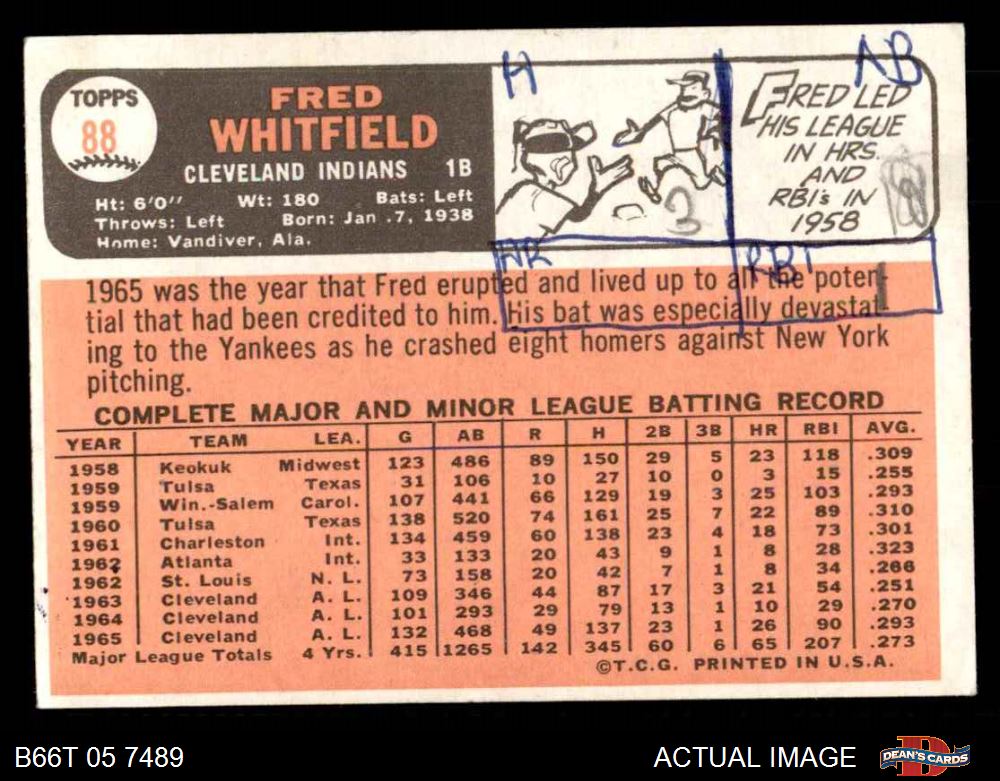 TOPPS
88
FRED
WHITFIELD
CLEVELAND INDIANS 1B
Ht: 6'0'' Wt: 180 Bats: Left
Throws: Left Born: Jan .7, 1938
Home: Vandiver, Ala.
H
AB
FRED LED
HIS LEAGUE
IN HRS.
AND
RBI's IN
1958
3
HR
RBI
1965 was the year that Fred erupted and lived up to all the poten-
tial that had been credited to him. His bat was especially devastat-
ing to the Yankees as he crashed eight homers against New York
pitching.
COMPLETE MAJOR AND MINOR LEAGUE BATTING RECORD
YEAR TEAM LEA. G AB R H 2B 3B HR RBI AVG.
1958 Keokuk Midwest 123 486 89 150 29 5 23 118 .309
1959 Tulsa Texas 31 106 10 27 10 0 3 15 .255
1959 Win.-Salem Carol. 107 441 66 129 19 3 25 103 .293
1960 Tulsa Texas 138 520 74 161 25 7 22 89 .310
1961 Charleston Int. 134 459 60 138 23 4 18 73 .301
1962 Atlanta Int. 33 133 20 43 9 1 8 28 .323
1962 St. Louis N. L. 73 158 20 42 7 1 8 34 .266
1963 Cleveland A. L. 109 346 44 87 17 3 21 54 .251
1964 Cleveland A. L. 101 293 29 79 13 1 10 29 .270
1965 Cleveland A. L. 132 468 49 137 23 1 26 90 .293
Major League Totals 4 Yrs. 415 1265 142 345 60 6 65 207 .273
©T.C.G. PRINTED IN U.S.A.
B66T 05 7489
ACTUAL IMAGE
DEAN'S CARDS